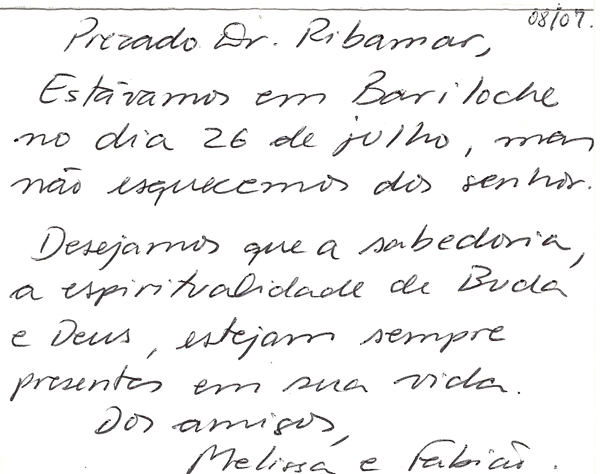 08/07.
Prezado Dr. Ribamar,
Estávamos em Bariloche
no dia 26 de julho, mas
não esquecemos dos senhor.
Desejamos que a sabedoria,
a espiritualidade de Buda
e Deus, estejam sempre
presentes em sua vida.
Dos amigos,
Melissa e Fabião.